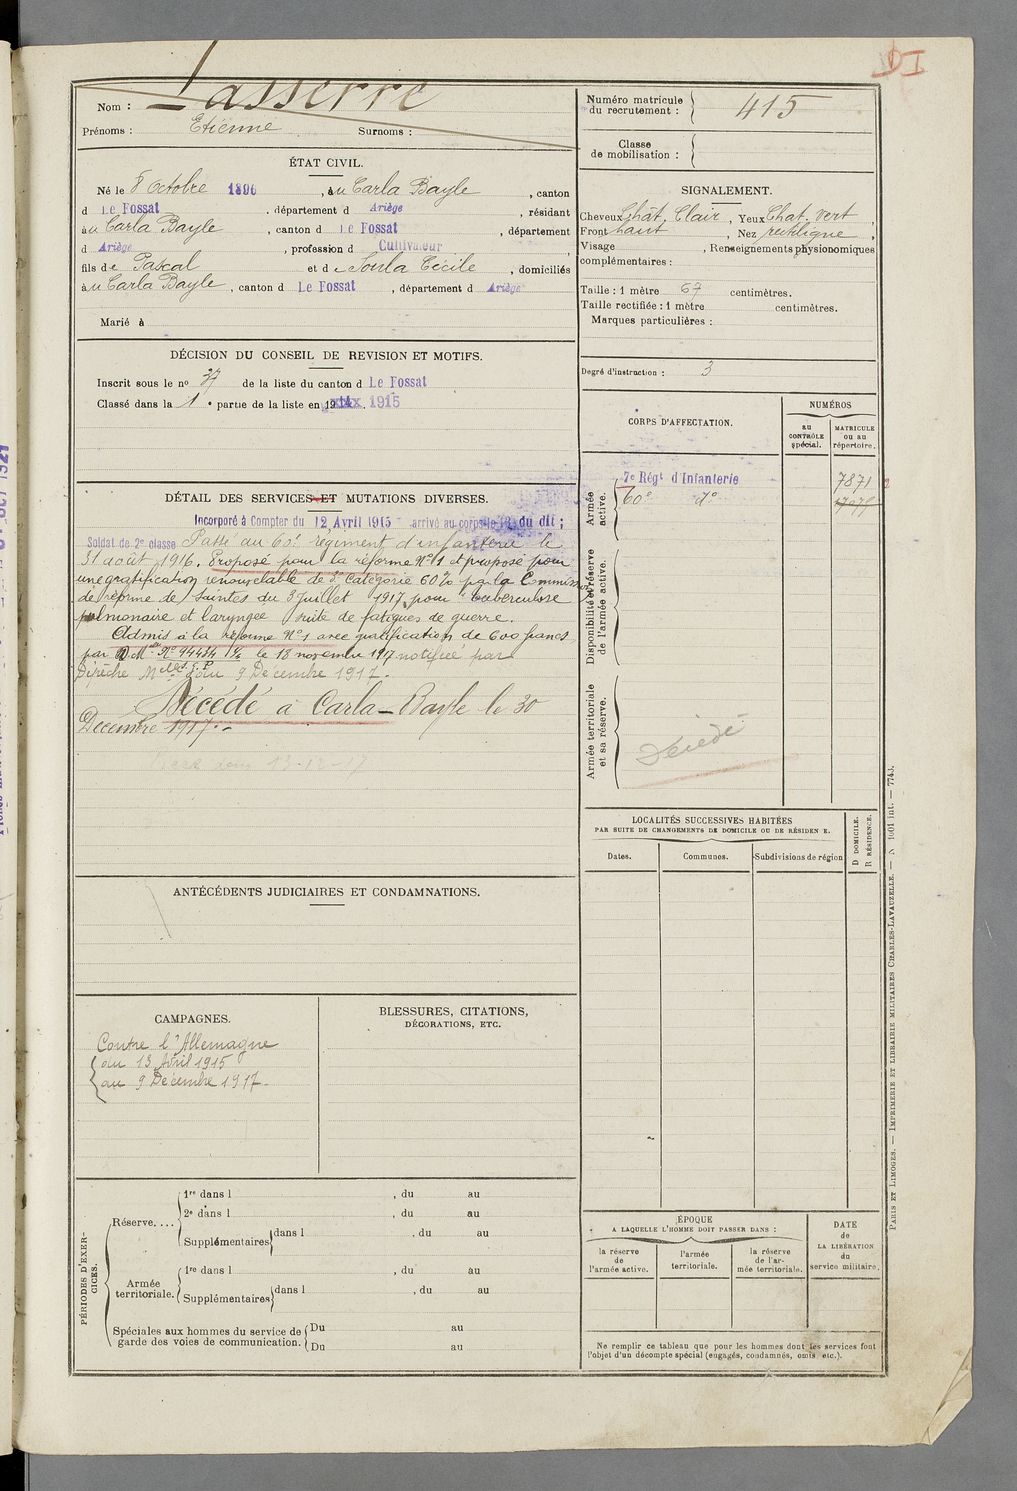 DI
Nom : Lasserre
Prénoms : Etienne Surnoms :
Numéro matricule
du recrutement : 415
Classe
de mobilisation :
ÉTAT CIVIL.
Né le 8 Octobre 1896, à u Carla Bayle, canton
d Le Fossat, département d Ariège, résidant
à u Carla Bayle, canton d Le Fossat, département
d Ariège, profession d Cultivateur,
fils de Pascal et de Soula Cécile, domiciliés
à u Carla Bayle, canton d Le Fossat, département d Ariège
Marié à
SIGNALEMENT.
Cheveux Chât. Clair, Yeux Chat. vert,
Front haut, Nez rectiligne,
Visage , Renseignements physionomiques
complémentaires :
Taille : 1 mètre 67 centimètres.
Taille rectifiée : 1 mètre centimètres.
Marques particulières :
Degré d'instruction : 3
DÉCISION DU CONSEIL DE REVISION ET MOTIFS.
Inscrit sous le nº 37 de la liste du canton d Le Fossat
Classé dans la 1e partie de la liste en 1915
DÉTAIL DES SERVICES ET MUTATIONS DIVERSES.
Incorporé à Compter du 12 Avril 1915 arrivé au corps le du dit ;
Soldat de 2e classe Passé au 60e régiment d'infanterie le
31 août 1916. Proposé pour la réforme Nº1 et proposé pour
une gratification renouvelable de 5e Catégorie 60% par la Commission
de réforme de Saintes du 3 Juillet 1917, pour tuberculose
pulmonaire et laryngée suite de fatigues de guerre.
Admis à la réforme Nº1 avec gratification de 600 francs
par D. Mlle Nº 94434 le 18 novembre 1917 notifiée par
Dépêche Mlle du 9 Décembre 1917.
Décédé à Carla-Bayle le 30
Décembre 1917.
13-12-17
CORPS D'AFFECTATION.
NUMÉROS
au
CONTRÔLE
spécial.
MATRICULE
ou au
répertoire.
Armée
active.
7e Régt d'Infanterie 7871
60e dº
Disponibilité et réserve
de l'armée active.
Armée territoriale
et sa réserve.
Décédé
LOCALITÉS SUCCESSIVES HABITÉES
PAR SUITE DE CHANGEMENTS DE DOMICILE OU DE RÉSIDENCE.
Dates. Communes. Subdivisions de région
D DOMICILE.
R RÉSIDENCE.
ANTÉCÉDENTS JUDICIAIRES ET CONDAMNATIONS.
CAMPAGNES.
Contre l'Allemagne
du 13 Avril 1915
au 9 Décembre 1917.
BLESSURES, CITATIONS,
DÉCORATIONS, ETC.
PÉRIODES D'EXER-
CICES.
Réserve....
1re dans l , du au
2e dans l , du au
Supplémentaires dans l , du au
Armée
territoriale.
1re dans l , du au
Supplémentaires dans l , du au
Spéciales aux hommes du service de
garde des voies de communication.
Du au
Du au
ÉPOQUE
A LAQUELLE L'HOMME DOIT PASSER DANS :
la réserve
de
l'armée active.
l'armée
territoriale.
la réserve
de l'ar-
mée territoriale.
DATE
de
LA LIBÉRATION
du
service militaire.
Ne remplir ce tableau que pour les hommes dont les services font
l'objet d'un décompte spécial (engagés, condamnés, omis etc.).
PARIS ET LIMOGES. — IMPRIMERIE ET LIBRAIRIE MILITAIRES CHARLES-LAVAUZELLE. — N 1001 int. — 7743.